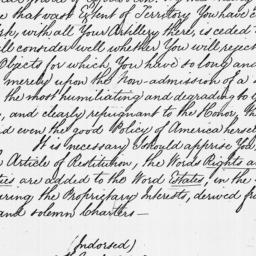 that vast Extent of Territory You have
with all Your Artillery there, is ceded
ll consider well whether You will reject
Objects for which You have so long and
merely upon the Non-admission of a
the most humiliating and degrading to
and clearly repugnant to the Honor, th
d even the good Policy of America hersel
It is necessary I should apprise You,
Article of Restitution, the Words Rights a
ties are added to the Word Estates, in the
uring the Proprietary Interests, derived f
and solemn Charters—
(Indorsed)